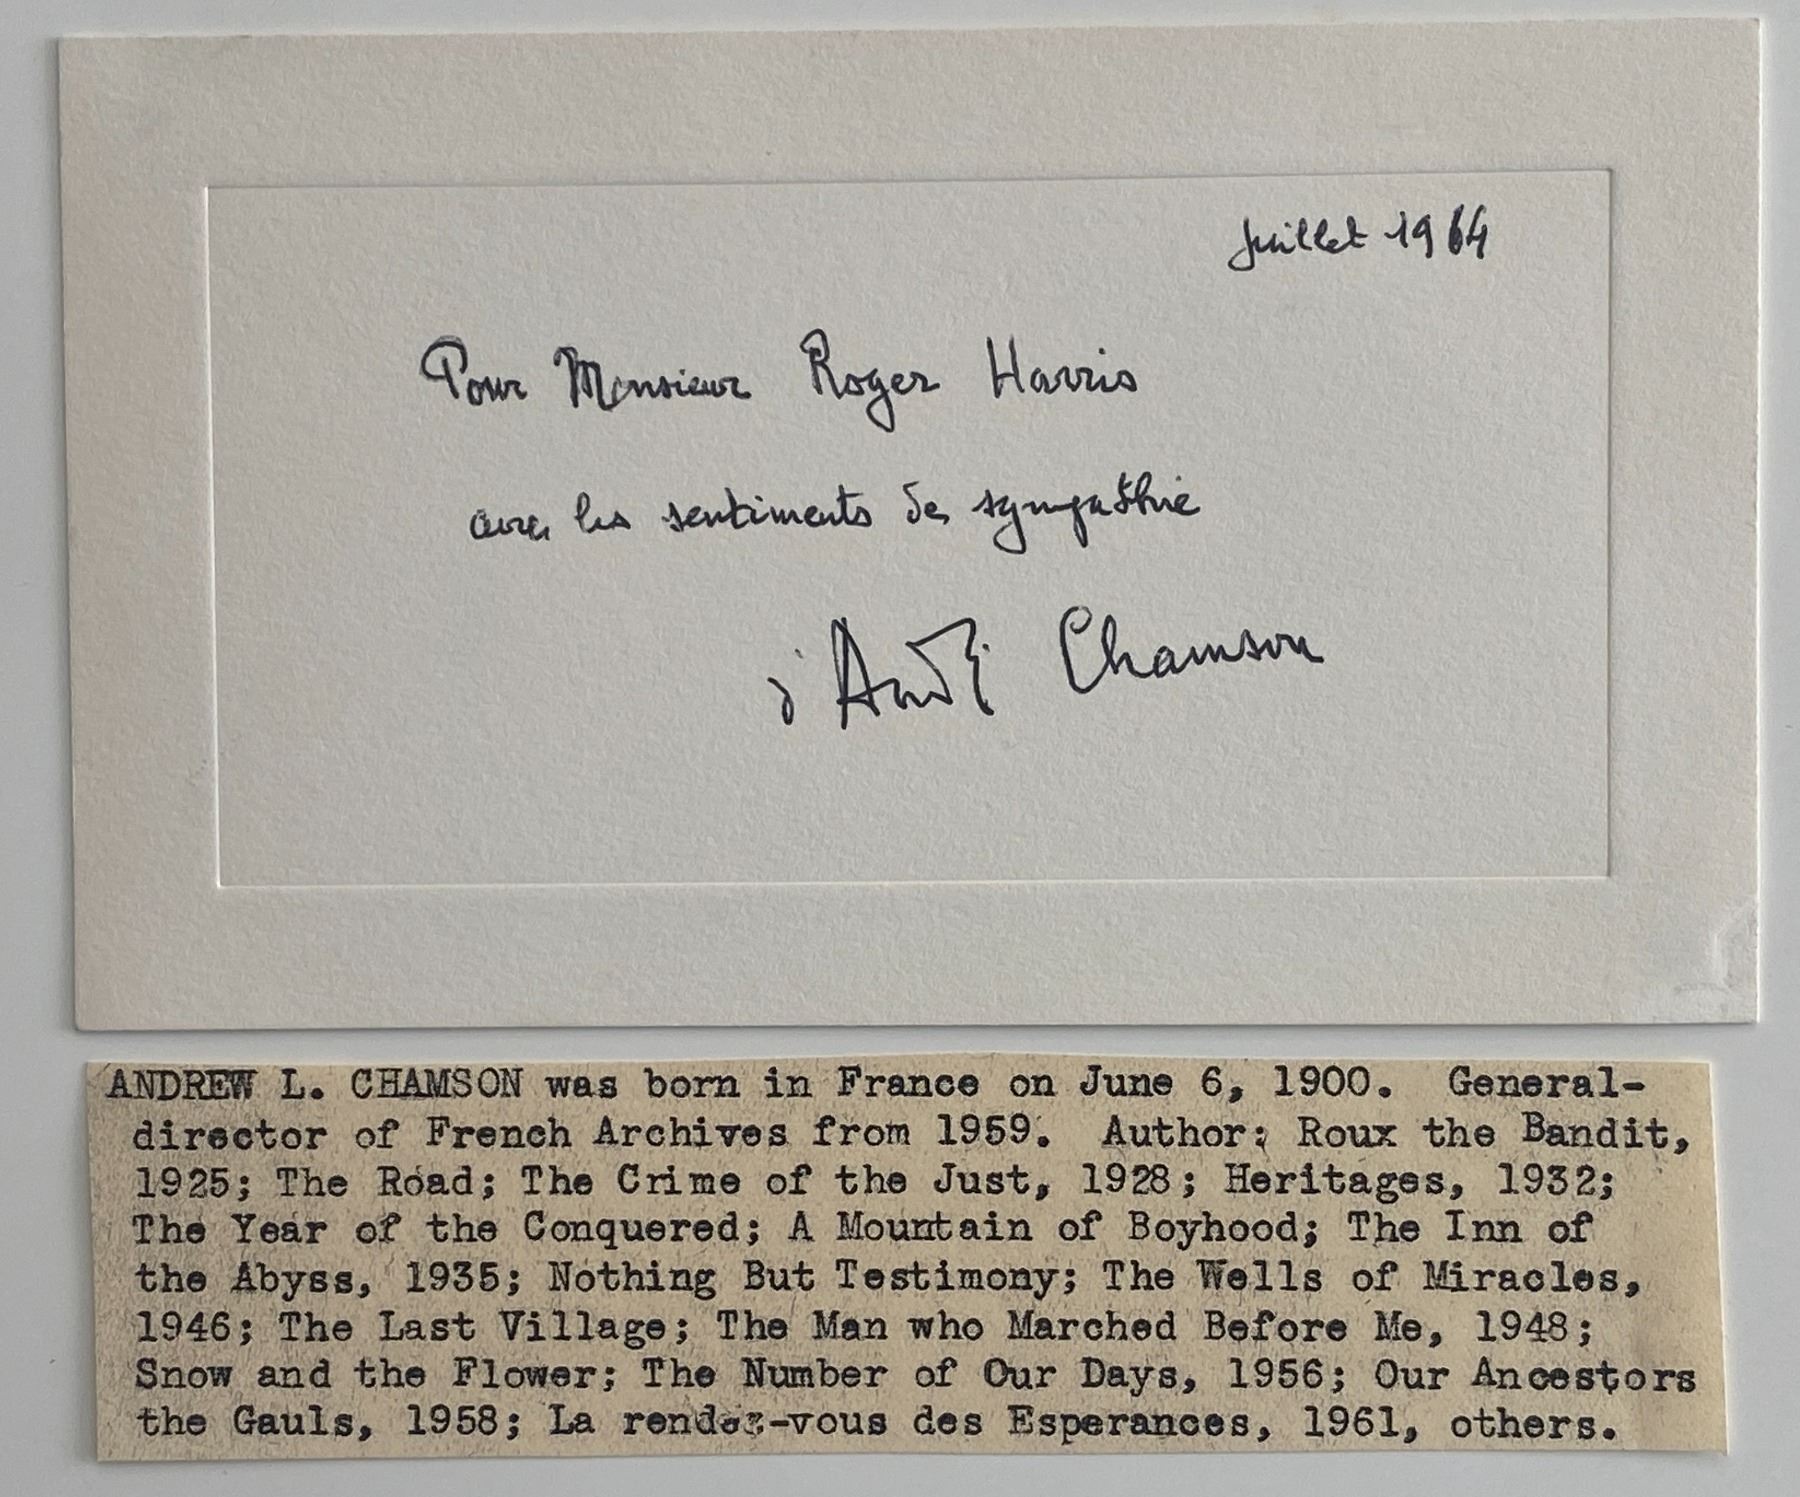 Juillet 1964
Pour Monsieur Roger Harris
avec les sentiments de sympathie
d'André Chamson
ANDREW L. CHAMSON was born in France on June 6, 1900. General-
director of French Archives from 1959. Author: Roux the Bandit,
1925; The Road; The Crime of the Just, 1928; Heritages, 1932;
The Year of the Conquered; A Mountain of Boyhood; The Inn of
the Abyss, 1935; Nothing But Testimony; The Wells of Miracles,
1946; The Last Village; The Man who Marched Before Me, 1948;
Snow and the Flower; The Number of Our Days, 1956; Our Ancestors
the Gauls, 1958; La rendez-vous des Esperances, 1961, others.